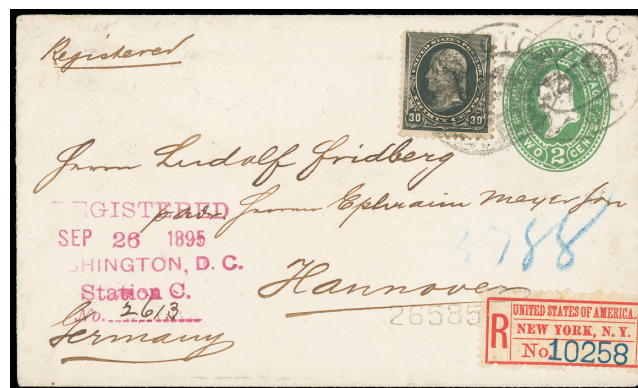 Registered
30 30
THIRTY CENTS
TWO 2 CENTS
Herrn Ludolf Fridberg
padr. Herrn Ephraim Meyer Son
REGISTERED
SEP 26 1895
SHINGTON, D. C.
Station C.
No. 2613
3788
Hannover
Germany
26585
R
UNITED STATES OF AMERICA.
NEW YORK, N. Y.
No 10258